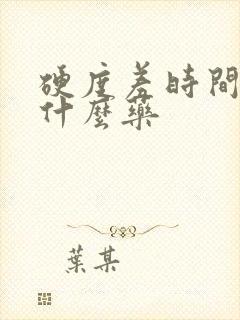 硬度差時間
什麼藥
葉某